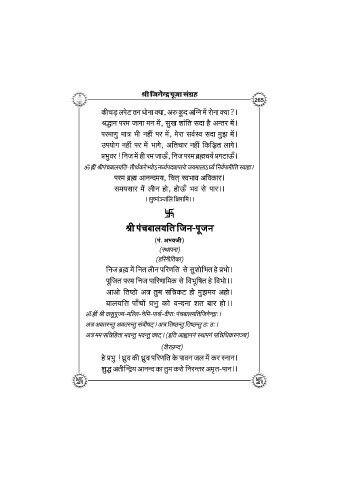 श्री जिनेन्द्र पूजा संग्रह
265
कीचड़ लपेट तन धोना क्या, अरु कूद अग्नि में रोना क्या?।
श्रद्धान परम जागा मन में, सुख शांति सदा है अन्तर में।
परमाणु मात्र भी नहीं पर में, मेरा सर्वस्व सदा मुझ में।
उपयोग नहीं पर में भागे, अतिचार नहीं किञ्चित लागे।
प्रभुवर ! निज में ही रम जाऊँ, निज परम ब्रह्मचर्य प्रगटाऊँ।
ॐ ह्रीं श्रीपंचबालयति-तीर्थंकरेभ्योऽनर्घ्यपदप्राप्तये जयमालाऽर्घ्यं निर्वपामीति स्वाहा।
परम ब्रह्म आनन्दमय, चित् स्वभाव अविकार।
समयसार में लीन हो, होऊँ भव से पार।।
। पुष्पाञ्जलिं क्षिपामि।।
श्री पंचबालयति जिन-पूजन
(पं. अभयजी)
(स्थापना)
(हरिगीतिका)
निज ब्रह्म में नित लीन परिणति से सुशोभित हे प्रभो।
पूजित परम निज पारिणामिक से विभूषित हे विभो।।
आओ तिष्ठो अत्र तुम सन्निकट हो मुझमय अहो।
बालयति पाँचों प्रभु को वन्दना शत बार हो।।
ॐ ह्रीं श्री वासुपूज्य-मल्लि-नेमि-पार्श्व-वीराः पंचबालयतिजिनेन्द्राः !
अत्र अवतरन्तु अवतरन्तु संवौषट्। अत्र तिष्ठन्तु तिष्ठन्तु ठः ठः।
अत्र मम सन्निहिता भवन्तु भवन्तु वषट्। (इति आह्वाननं स्थापनं सन्निधिकरणञ्च)
(वीरछन्द)
हे प्रभु ! ध्रुव की ध्रुव परिणति के पावन जल में कर स्नान।
शुद्ध अतीन्द्रिय आनन्द का तुम करो निरन्तर अमृत-पान।।